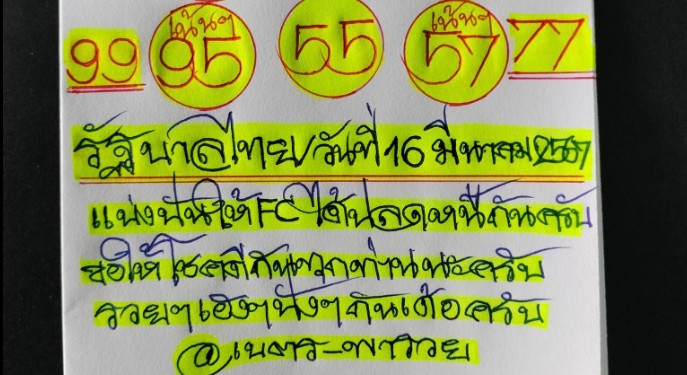 เน้นๆ เน้นๆ
99 95 55 57 77
รัฐบาลไทย/วันที่ 16 มีนาคม 2567
แบ่งปันให้ FC ได้ปลดหนี้กันครับ
ขอให้โชคดีกันทุกท่านนะครับ
รวยๆเฮงๆปังๆกันเด้อครับ
@เนตร-พารวย